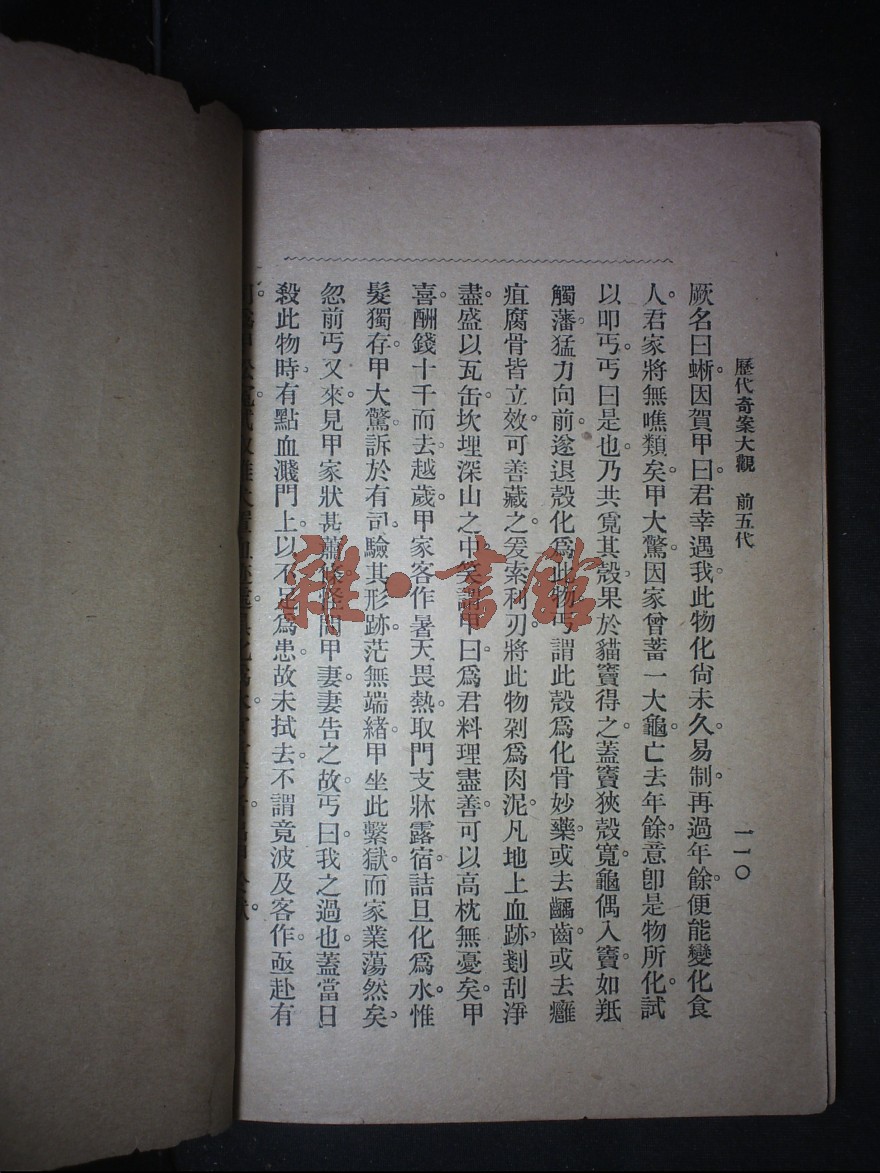 歷代奇案大觀　前五代　一一〇
厥名曰蜥。因賀甲曰。君幸遇我。此物化尙未久。易制。再過年餘。便能變化食
人。君家將無噍類矣。甲大驚。因家曾蓄一大龜。亡去年餘。意卽是物所化。試
以叩丐。丐曰。是也。乃共覓其殼。果於貓竇得之。蓋竇狹殼寬。龜偶入竇。如羝
觸藩。猛力向前。遂退殼化爲此物。丐謂此殼爲化骨妙藥。或去齲齒。或去癰
疽腐骨。皆立效。可善藏之。爰索利刃。將此物剁爲肉泥。凡地上血跡。剗刮淨
盡。盛以瓦缶。坎埋深山之中。笑謂甲曰。爲君料理盡善。可以高枕無憂矣。甲
喜。酬錢十千而去。越歲。甲家客作。暑天畏熱。取門支牀露宿。詰旦化爲水。惟
髮獨存。甲大驚。訴於有司。驗其形跡。茫無端緒。甲坐此繫獄。而家業蕩然矣。
忽前丐又來。見甲家狀甚蕭條。怪問甲妻。妻告之故。丐曰。我之過也。蓋當日
殺此物時。有點血濺門上。以不足爲患。故未拭去。不謂竟波及客作。亟赴有
雜·書館